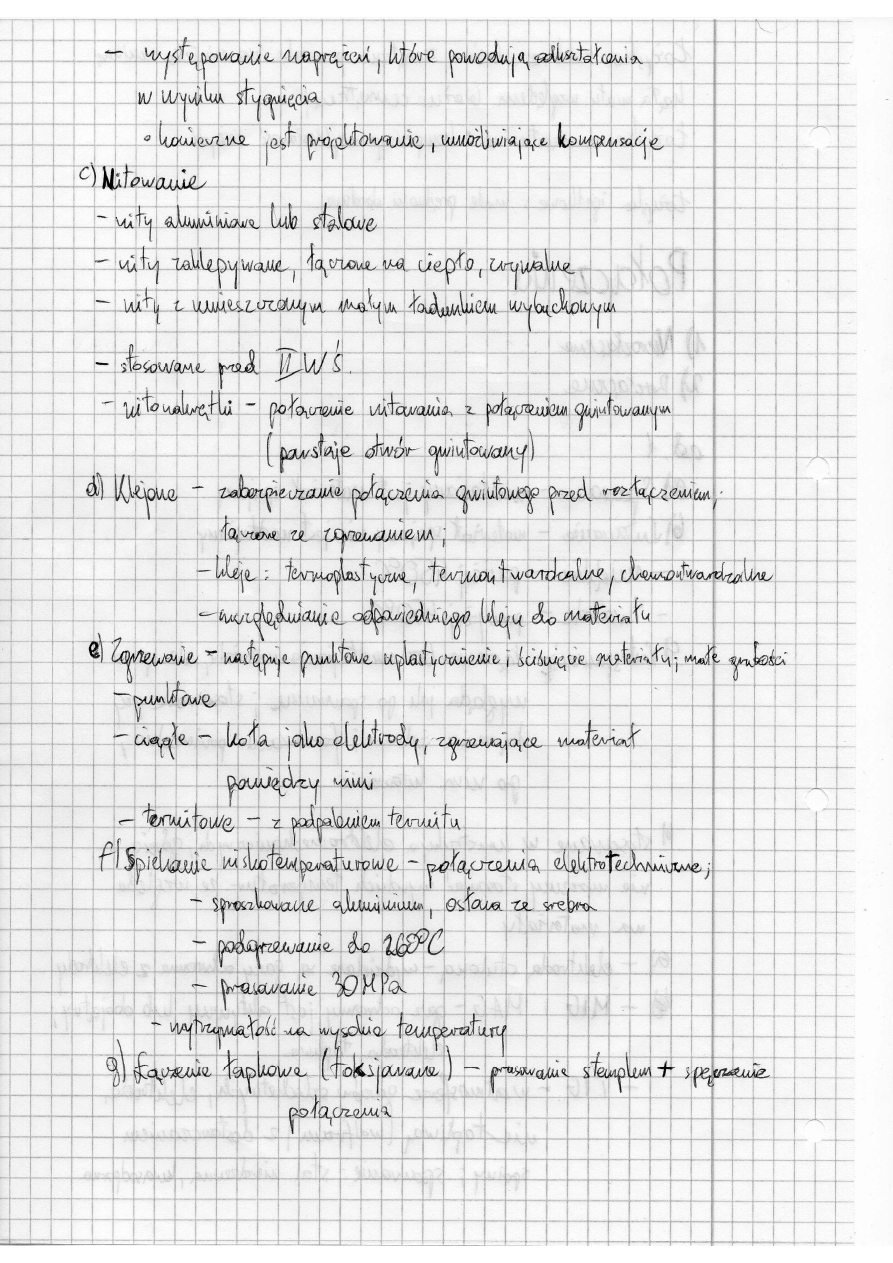 – występowanie naprężeń, które powodują odkształcenia
w wyniku stygnięcia
◦ konieczne jest projektowanie, umożliwiające kompensację
c) Nitowanie
– nity aluminiowe lub stalowe
– nity zaklepywane, łączone na ciepło, zrywalne
– nity z umieszczonym małym ładunkiem wybuchowym
– stosowane przed II WŚ.
– nitonakrętki – połączenie nitowania z połączeniem gwintowanym
(powstaje otwór gwintowany)
d) Klejone – zabezpieczanie połączenia gwintowego przed rozłączeniem;
łączone ze zgrzewaniem;
– kleje: termoplastyczne, termoutwardzalne, chemoutwardzalne
– uwzględnianie odpowiedniego kleju do materiału
e) Zgrzewanie – następuje punktowe uplastycznienie i ściśnięcie materiału; małe grubości
– punktowe
– ciągłe – koła jako elektrody, zgrzewające materiał
pomiędzy nimi
– termitowe – z podpaleniem termitu
f) Spiekanie niskotemperaturowe – połączenia elektrotechniczne;
– sproszkowane aluminium, osłona ze srebra
– podogrzewanie do 260°C
– prasowanie 30 MPa
– wytrzymałość na wysokie temperatury
g) Łączenie łapkowe (toksjowane) – prasowanie stemplem + spęczenie
połączenia